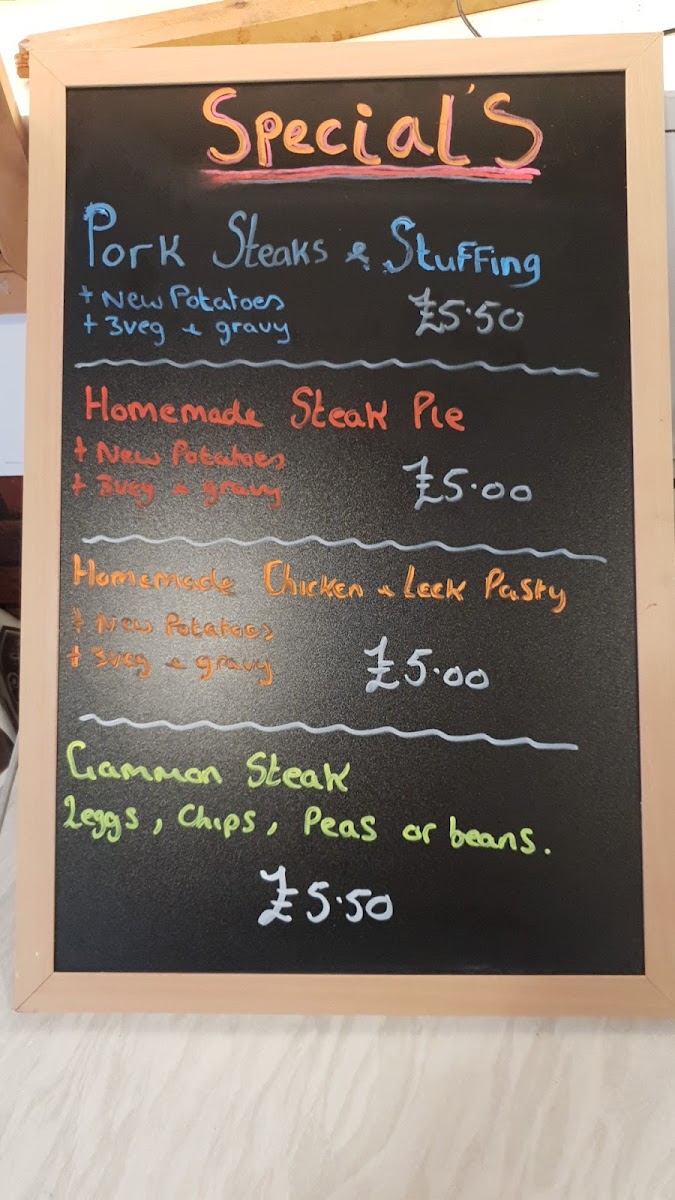 Special'S
Pork Steaks & Stuffing
+ New Potatoes
+ 3veg & gravy
£5.50
Homemade Steak Pie
+ New Potatoes
+ 3veg & gravy
£5.00
Homemade Chicken & Leek Pasty
+ New Potatoes
+ 3veg & gravy
£5.00
Gammon Steak
2eggs, Chips, Peas or beans.
£5.50